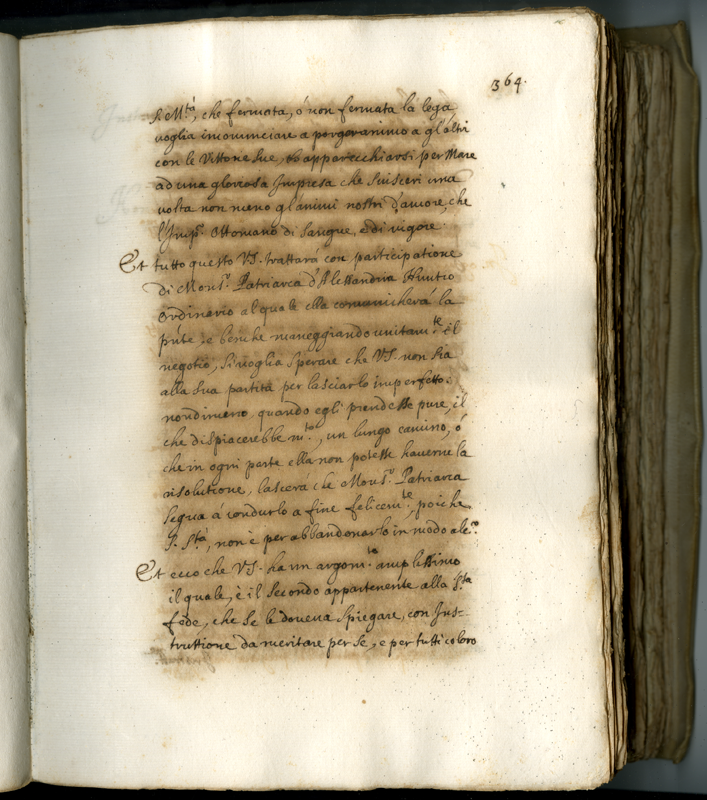 364.
S. M.tà, che fermata, ó non fermata la lega
voglia incominciare a porger animo a gl'altri
con le Vittorie sue, et apparecchiarsi per Mare
ad una gloriosa Impresa che susciti una
volta non meno gl'animi nostri d'amore, che
l'Imp.º Ottomano di sangue, e di vigore.
Et tutto questo VS. trattará con participatione
di Mons.r Patriarca d'Alessandria Nuntio
Ordinario al quale ella comunicherá la
pn̄te, e benche maneggiando unitam.te il
negotio, si voglia sperare che VS. non sia
alla sua partita per lasciarlo imperfetto;
nondimeno quando egli prendesse pure, il
che dispiacerebbe m.to, un lungo camino, ó
che in ogni parte ella non potesse haverne la
risolutione, lascerá che Mons.r Patriarca
segua á condurlo a fine felicem.te, poiche
S. S.tà, non è per abbandonarlo in modo alc.º
Et ecco che VS. ha un argom.to amplissimo
il quale, è il secondo appartenente alla S.ta
fede, che se le doveva spiegare, con Ins=
truttione da meritare per se, e per tutti coloro